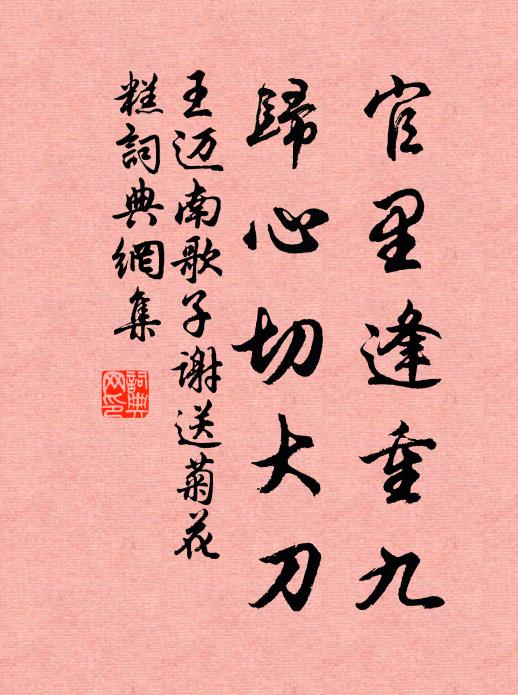 官里逢重九
歸心切大刀
王迈南歌子谢送菊花
糕詞典網集
詞典
网印